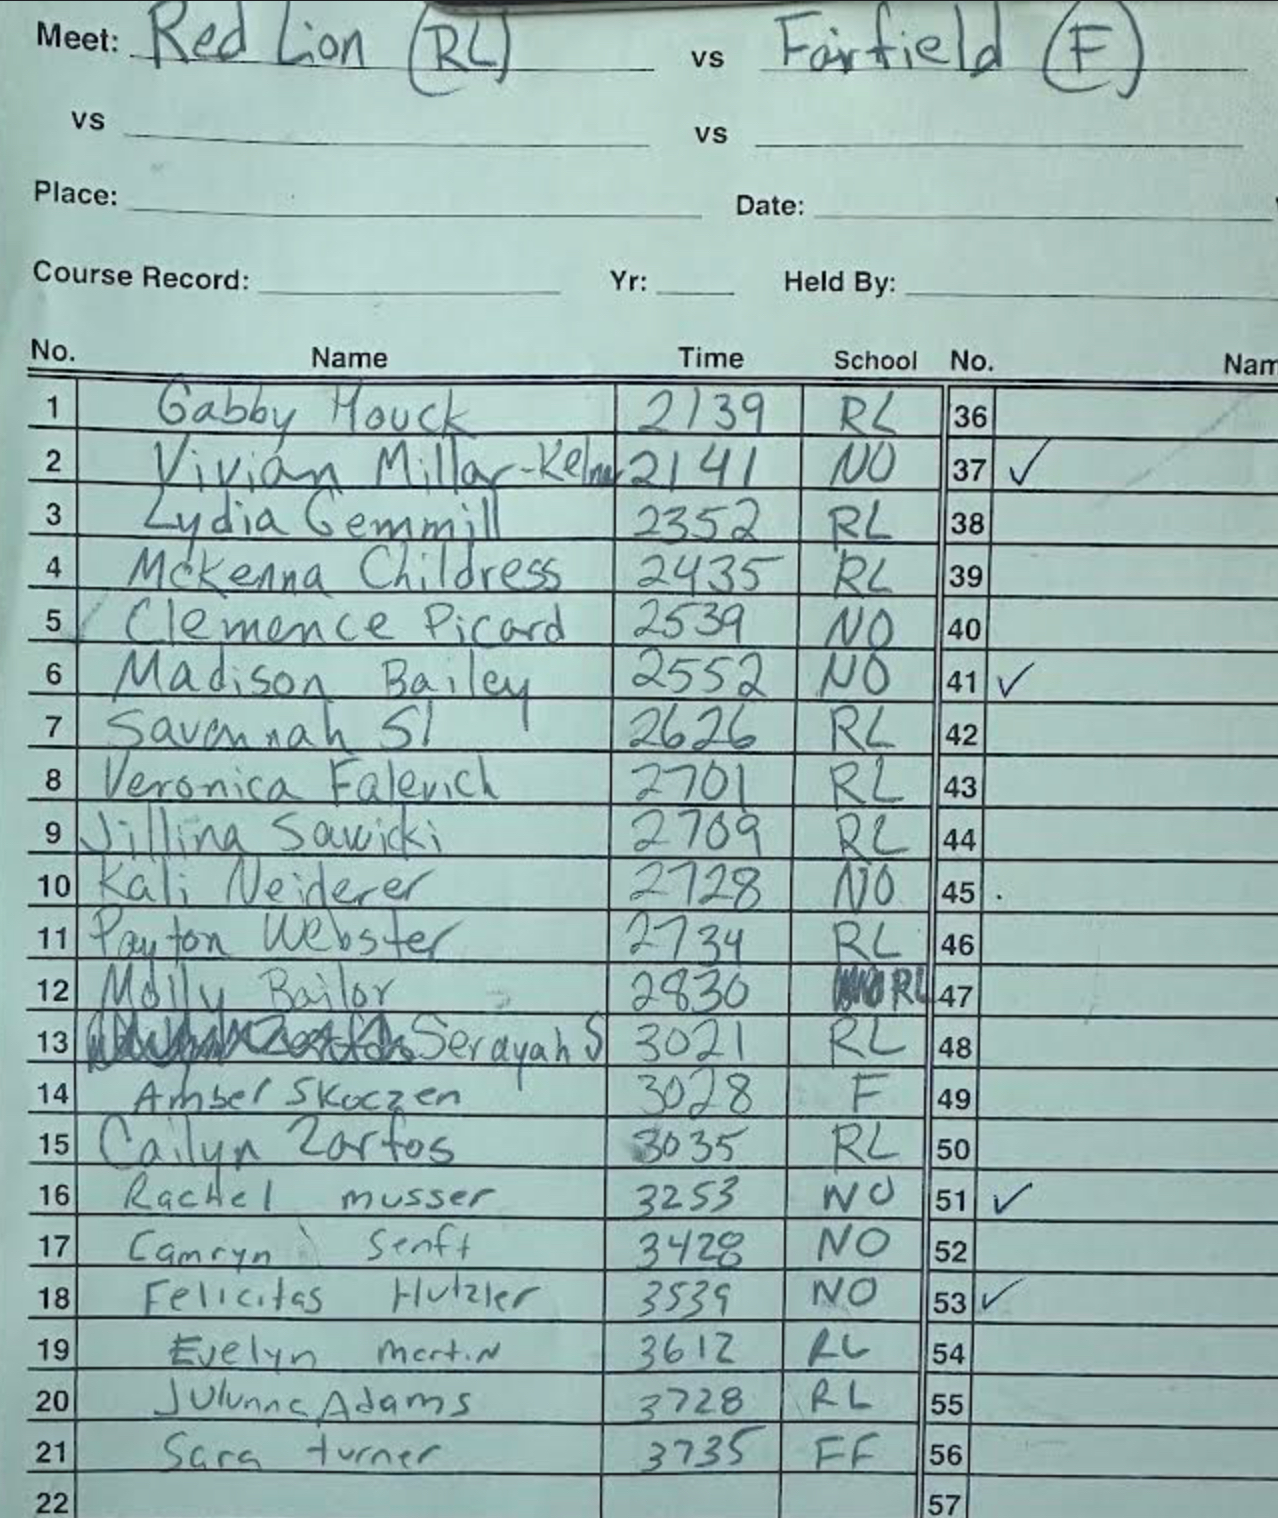 Meet: Red Lion (RL) vs Fairfield (F)
vs vs
Place: Date:
Course Record: Yr: Held By:
No. Name Time School No. Nam
1 Gabby Houck 2139 RL 36
2 Vivian Millar- 2141 NO 37 ✓
3 Lydia Gemmill 2352 RL 38
4 McKenna Childress 2435 RL 39
5 Clemence Picard 2539 NO 40
6 Madison Bailey 2552 NO 41 ✓
7 Savannah Sl 2626 RL 42
8 Veronica Falevich 2701 RL 43
9 Jillina Sawicki 2709 RL 44
10 Kali Neiderer 2728 NO 45
11 Payton Webster 2734 RL 46
12 Molly Bailor 2830 RL 47
13 Serayah S 3021 RL 48
14 Amber Skoczen 3028 F 49
15 Cailyn Zarfos 3035 RL 50
16 Rachel musser 3253 NO 51 ✓
17 Camryn Senft 3428 NO 52
18 Felicitas Hutzler 3539 NO 53 ✓
19 Evelyn Martin 3612 RL 54
20 Adams 3728 RL 55
21 Sara turner 3735 FF 56
22 57